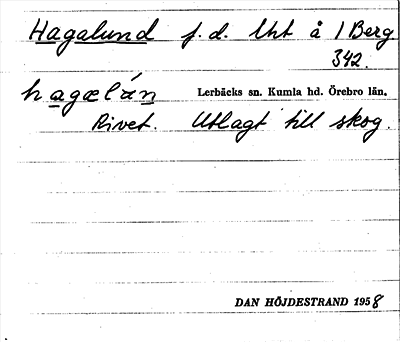 Hagalund f.d. lht å 1 Berg
342.
hagælán Lerbäcks sn. Kumla hd. Örebro län.
Rivet. Utlagt till skog.
DAN HÖJDESTRAND 1958